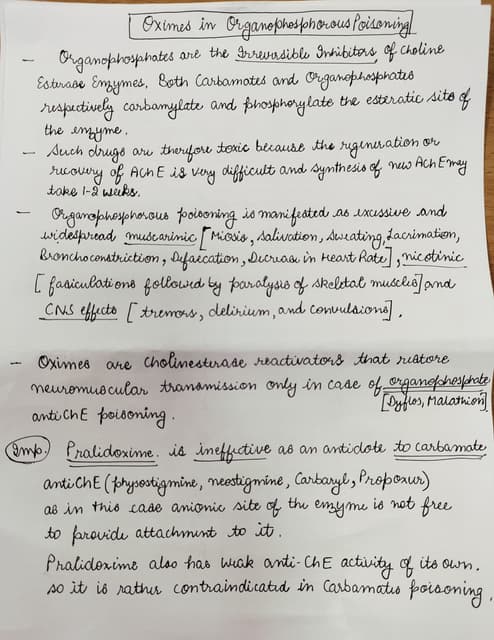 Oximes in Organophosphorous Poisoning
– Organophosphates are the Irreversible Inhibitors of Choline
Esterase Enzymes. Both Carbamates and Organophosphates
respectively carbamylate and phosphorylate the esteratic site of
the enzyme.
– Such drugs are therefore toxic because the regeneration or
recovery of AChE is very difficult and synthesis of new AChE may
take 1-2 weeks.
– Organophosphorous poisoning is manifested as excessive and
widespread muscarinic [Miosis, Salivation, Sweating, Lacrimation,
Bronchoconstriction, Defaecation, Decrease in Heart Rate], nicotinic
[fasiculations followed by paralysis of skeletal muscles] and
CNS effects [tremors, delirium, and convulsions].
– Oximes are cholinesterase reactivators that restore
neuromuscular transmission only in case of organophosphate
antiChE poisoning. [Dyflos, Malathion]
Imp. Pralidoxime is ineffective as an antidote to carbamate
antiChE (physostigmine, neostigmine, Carbaryl, Propoxur)
as in this case anionic site of the enzyme is not free
to provide attachment to it.
Pralidoxime also has weak anti-ChE activity of its own.
so it is rather contraindicated in Carbamates poisoning.